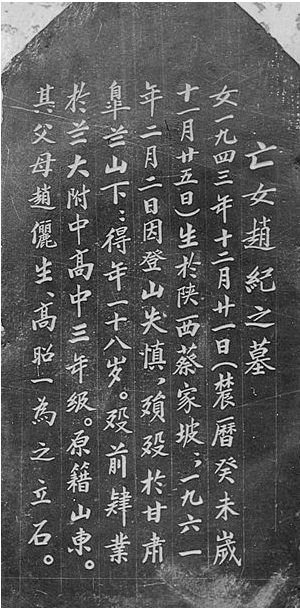 亡女趙紀之墓
女一九四三年十二月廿一日(農曆癸未歲
十一月廿五日)生於陕西蔡家坡;一九六一
年二月二日因登山失慎,殞殁於甘肃
臯兰山下;得年一十八岁。殁前肄業
於兰大附中高中三年級。原籍山東。
其父母趙儷生、高昭一為之立石。